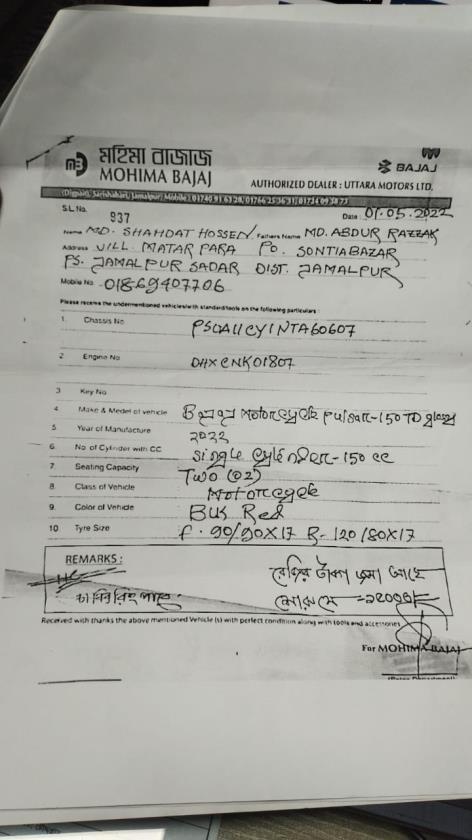 মহিমা বাজাজ
MOHIMA BAJAJ
BAJAJ
AUTHORIZED DEALER : UTTARA MOTORS LTD.
(Digpait), Sarishabari, Jamalpur, Mobile : 01740 91 63 28, 01766 25 36 31, 01734 09 38 73
S.L. No. 937 Date : 01.05.2022
Name MD. SHAHDAT HOSSEN Fathers Name MD. ABDUR RAZZAK
Address VILL. MATAR PARA PO. SONTIABAZAR
PS. JAMALPUR SADAR DIST. JAMALPUR
Mobile No. 01869407706
Please receive the undermentioned vehicle/s with standard tools on the following particulars :
1. Chassis No PSUA11CY1NTA60607
2 Engine No DHXCNK01807
3 Key No
4 Make & Medel of vehicle Motorcycle Pulsar-150 TD
5 Year of Manufacture 2022
6. No of Cylinder with CC single cylender-150 cc
7. Seating Capacity Two (02)
8. Class of Vehicle Motorcycle
9. Color of Vehicle Bus Red
10. Tyre Size F. 90/90X17 R-120/80X17
REMARKS :
রেজির টাকা জমা আছে
Received with thanks the above mentioned Vehicle (s) with perfect condition along with tools and accessories
For MOHIMA BAJAJ